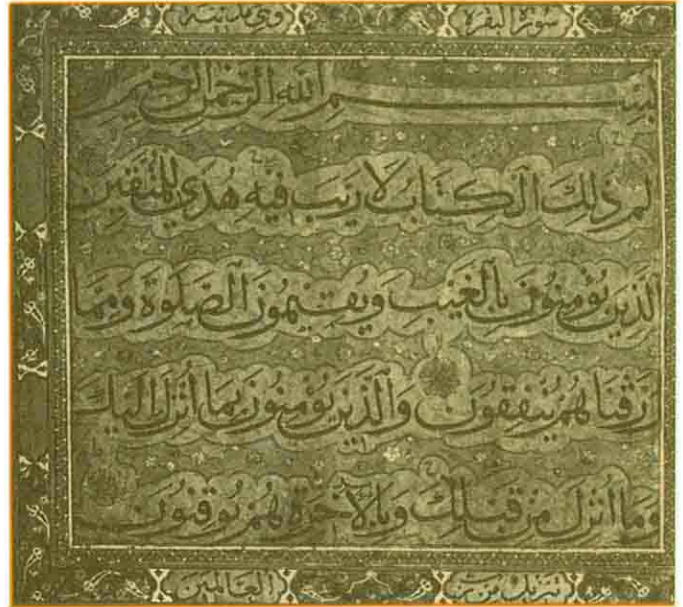 سورة البقرة وهي مدنية
بسم الله الرحمن الرحيم
الم ذلك الكتاب لا ريب فيه هدى للمتقين
الذين يؤمنون بالغيب ويقيمون الصلوة ومما
رزقناهم ينفقون والذين يؤمنون بما أنزل إليك
وما أنزل من قبلك وبالآخرة هم يوقنون
تنزيل من رب العالمين